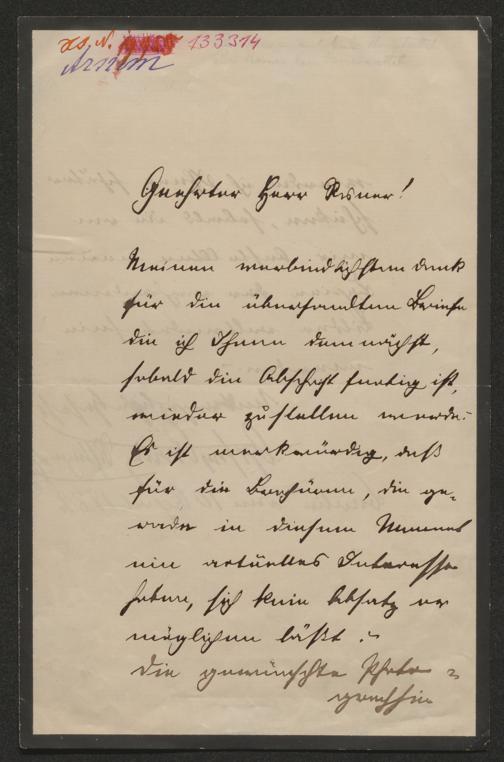 H.I.N. 133314
Arnim
Geehrter Herr Rosner!
Meinen verbindlichsten Dank
für die übersandten Briefe
die ich Ihnen demnächst,
sobald die Abschrift fertig ist,
wieder zustellen werde.
Es ist merkwürdig, daß
für die Broschüren, die ge-
rade in diesem Momente
ein actuelles Interesse
haben, sich kein Absatz er
möglichen läßt.
Die gewünschte Photo-
graphie